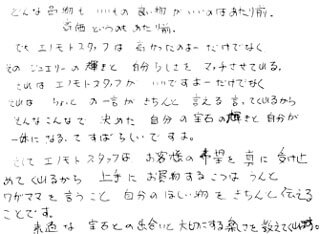 どんな品物も いいもの 良い物が いいのはあたり前。
高価 というのも あたり前。
でも エノモトスタッフは 高かったのよーだけでなく
そのジュエリーの輝きと 自分らしさを マッチさせてくれる。
これは エノモトスタッフが いいですよーだけでなく
それは ちょっと の一言が きちんと 言える 言ってくれるから
そんなこんなで 決めた 自分の宝石の輝きと自分が
一体になるってすばらしいですよ。
そして エノモトスタッフは お客様の希望を 真に 受け止
めてくれるから 上手に お買物する こつは うんと
ワガママを言うこと 自分のほしい物を きちんと伝える
ことです。
素適な 宝石との出合いと大切にする楽しさを教えてくれます。